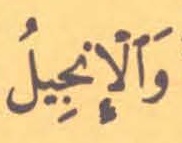 وَٱلْإِنجِيلُ